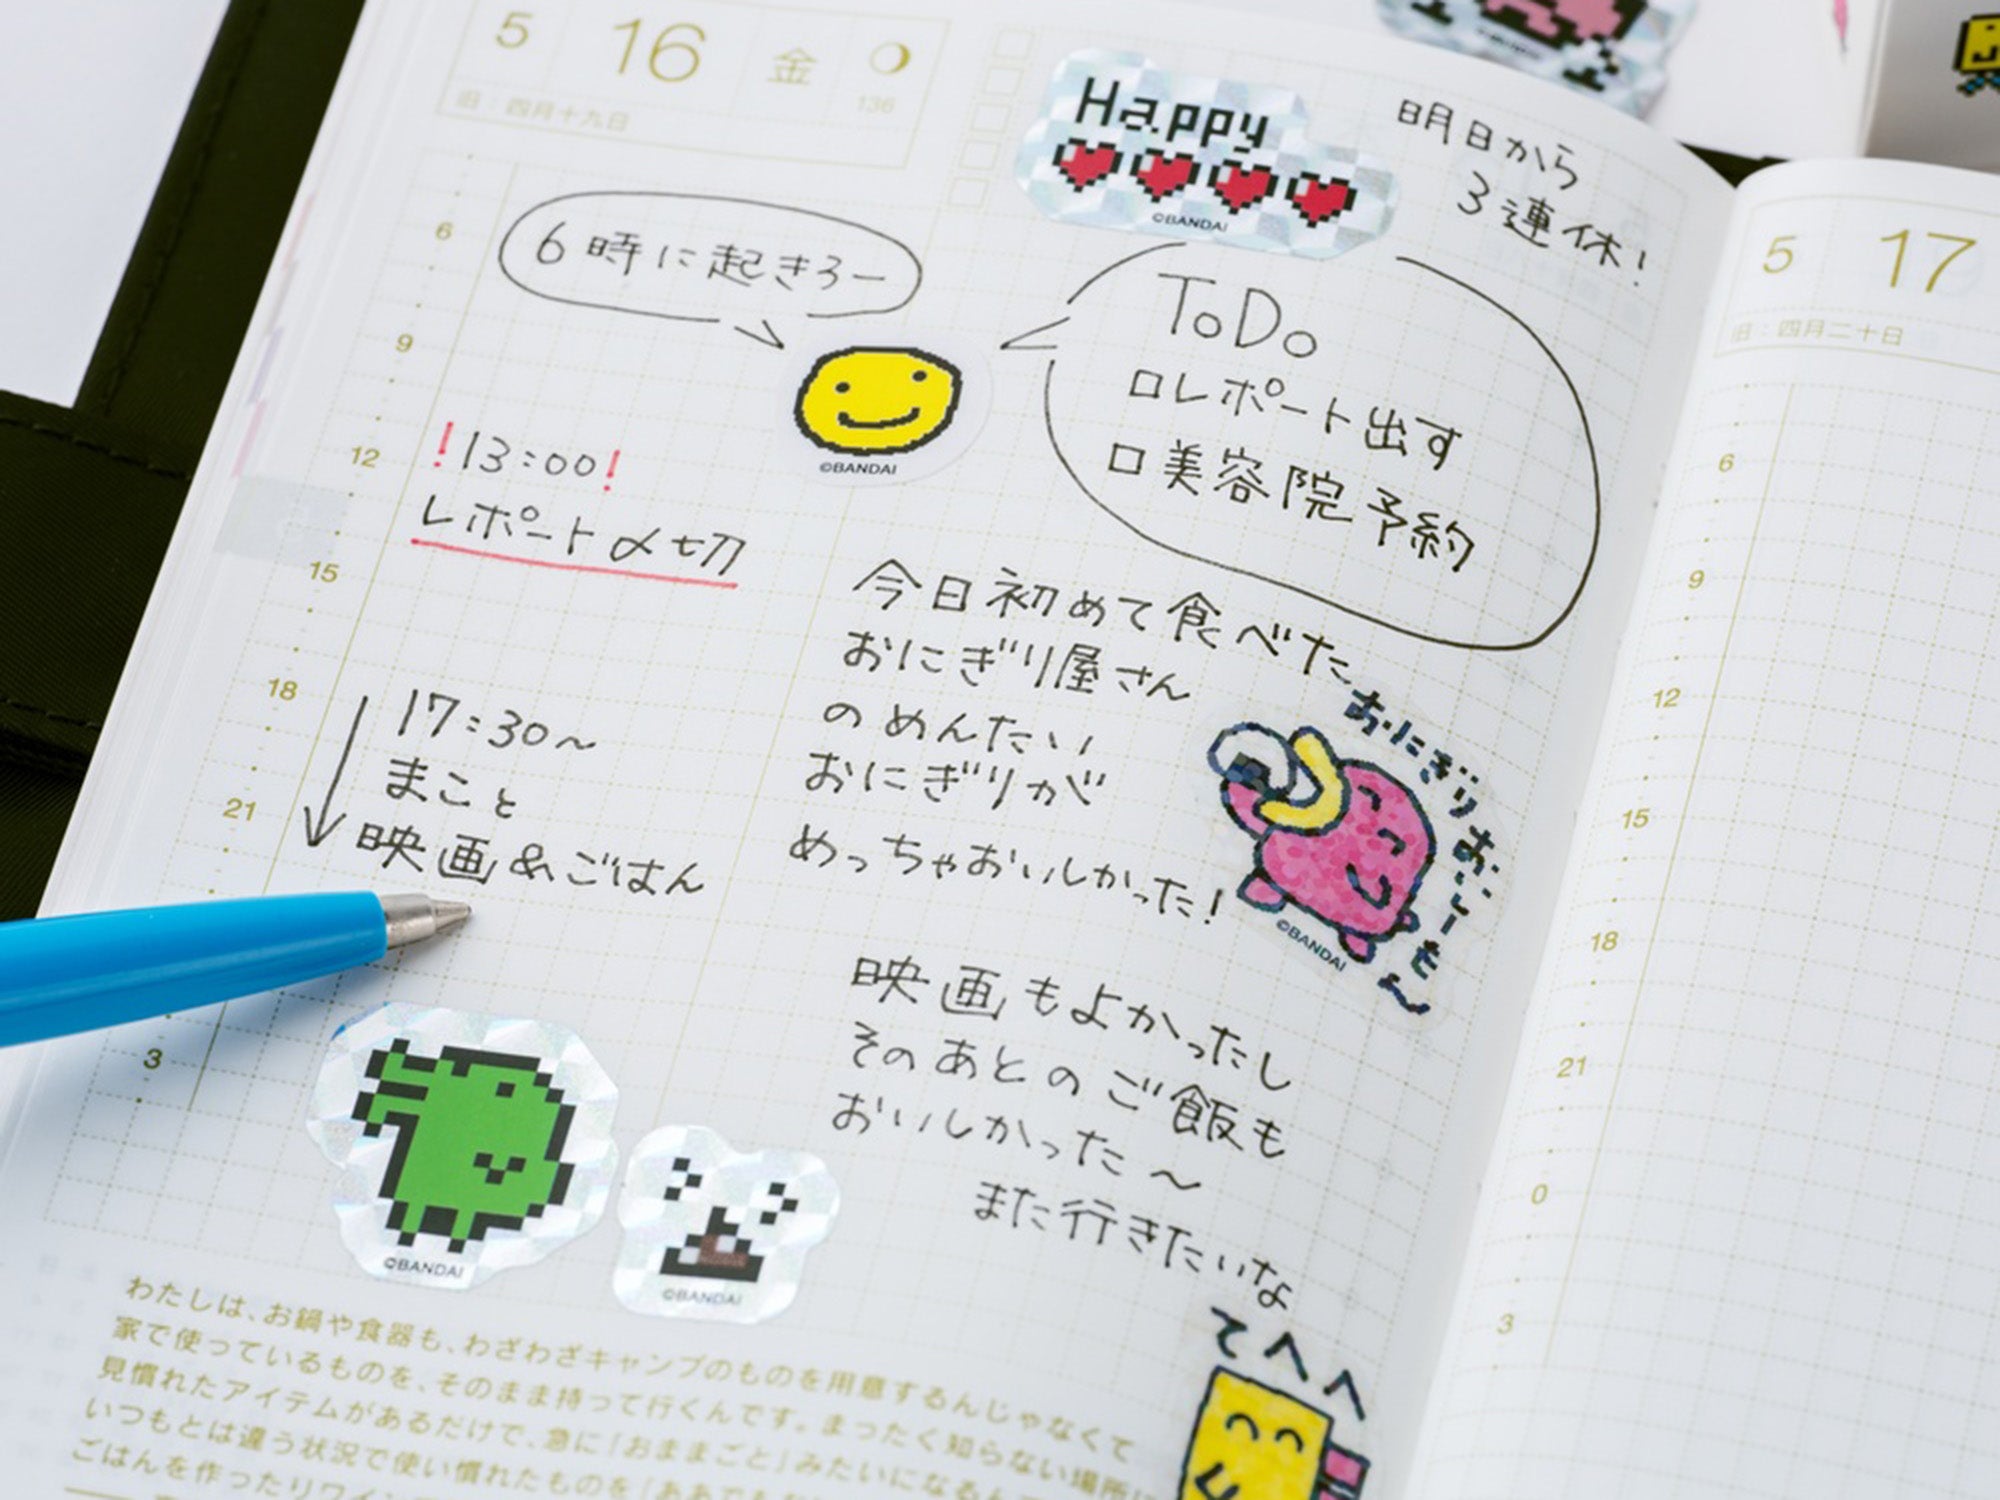 5 16 金
136
旧：四月十九日
Happy
©BANDAI
明日から
3連休！
6時に起きろー
©BANDAI
ToDo
□レポート出す
□美容院予約
！13:00！
レポート〆切
17:30〜
まこと
映画&ごはん
今日初めて食べた
おにぎり屋さん
のめんたい
おにぎりが
めっちゃおいしかった！
おにぎりおいしーも〜
©BANDAI
映画もよかったし
そのあとのご飯も
おいしかった〜
また行きたいな
てへへ
©BANDAI
©BANDAI
6
9
12
15
18
21
3
わたしは、お鍋や食器も、わざわざキャンプのものを用意するんじゃなくて
家で使っているものを、そのまま持って行くんです。まったく知らない場所に
見慣れたアイテムがあるだけで、急に「おままごと」みたいになるん
いつもとは違う状況で使い慣れたものを
ごはんを作ったりワイン
5 17
旧：四月二十日
6
9
12
15
18
21
0
3